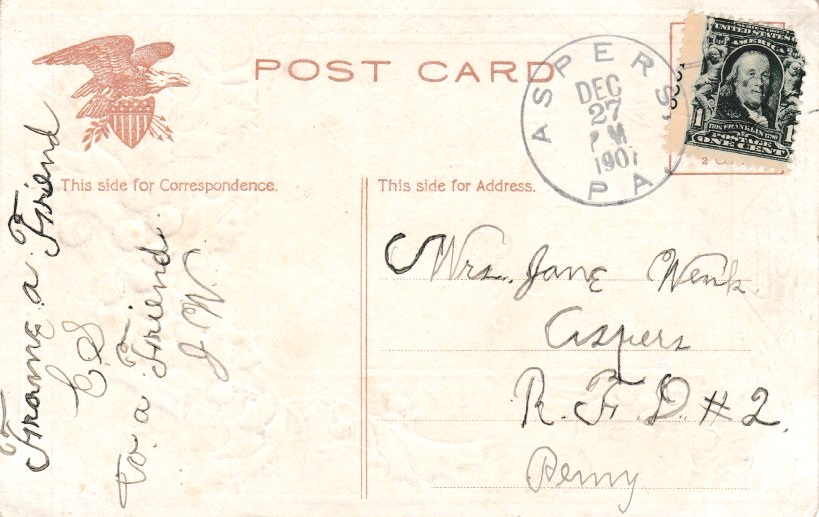 POST CARD
ASPERS, PA.
DEC
27
P M
1907
UNITED STATES
AMERICA
1 1
1706 FRANKLIN 1790
POSTAGE
ONE CENT
This side for Correspondence.
This side for Address.
Frome a Friend
C S
to a Friend.
J W.
Mrs. Jane Wenk.
Aspers
R. F. D. # 2.
Penny